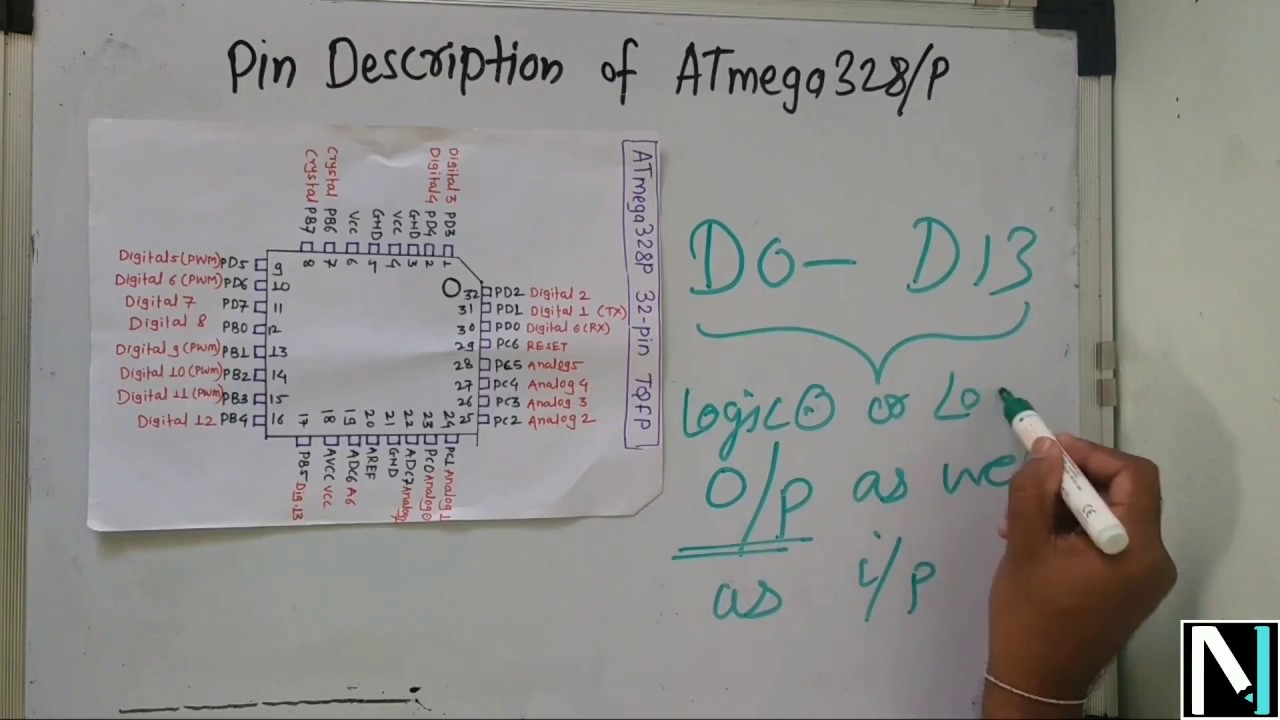 Pin Description of ATmega328/P
ATmega328P 32-pin TQFP
Crystal PB7 8
Crystal PB6 7
VCC 6
GND 5
VCC 4
GND 3
Digital 4 PD4 2
Digital 3 PD3 1
Digital5(PWM) PD5 9
Digital 6(PWM) PD6 10
Digital 7 PD7 11
Digital 8 PB0 12
Digital 9(PWM) PB1 13
Digital 10(PWM) PB2 14
Digital 11(PWM) PB3 15
Digital 12 PB4 16
32 PD2 Digital 2
31 PD1 Digital 1 (TX)
30 PD0 Digital 0(RX)
29 PC6 RESET
28 PC5 Analog5
27 PC4 Analog 4
26 PC3 Analog 3
25 PC2 Analog 2
17 PB5 Dig-13
18 AVCC VCC
19 ADC6 A6
20 AREF
21 GND
22 ADC7 Analog7
23 PC0 Analog0
24 PC1 Analog 1
D0 – D13
Logic 0 or Lo
O/p as we
as i/p
N